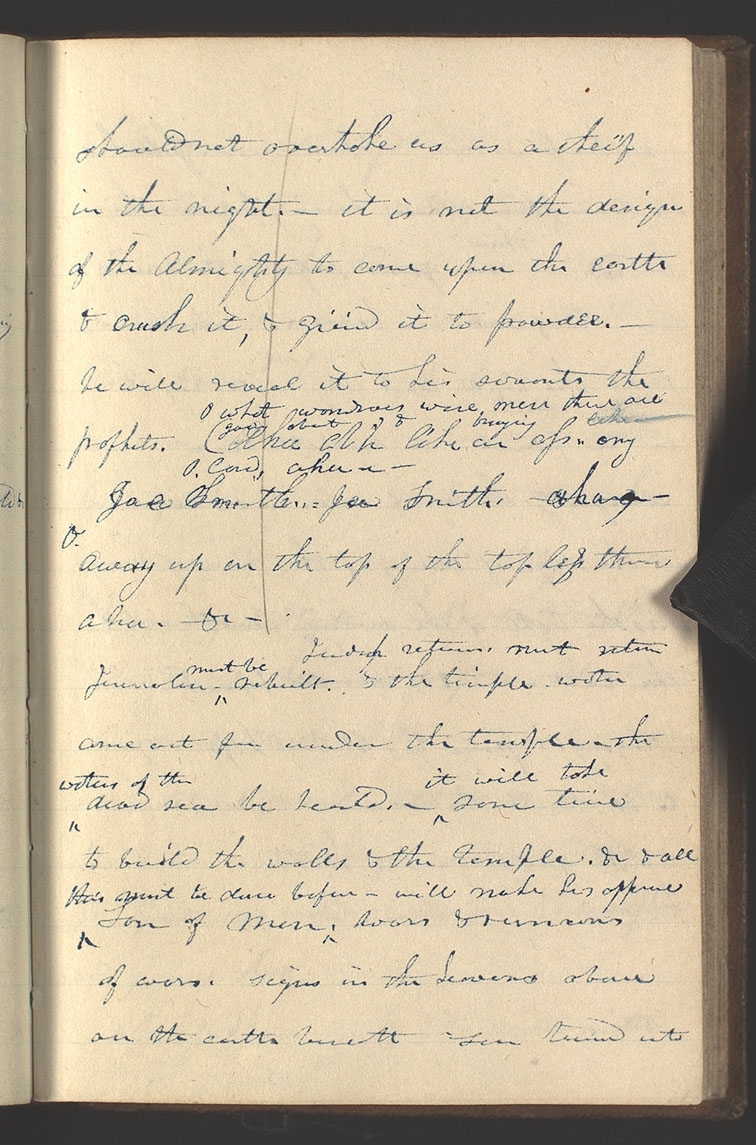 should not overtake us as a theif
in the night.— it is not the design
of the Almighty to come upon the earth
& crush it, & grind it to powder.—
he will reveal it to his servants the
O what wondrous wise men there are
going about & braying like
prophets. like an ass
O. Lord,
Joe Smith.= Joe Smith.
&
away up on the top of the top less throne
aha. — &c —
Judah return. must return
must be
Jerusalem rebuilt. & the temple water
come out from under the temple — the
waters of the
it will take
dead sea be healed.— some time
to build the walls & the temple. &c & all
this must be done before — will make his appearance
Son of Man; wars & rumours
of wars. signs in the heavens above
on the earth beneath Sun turned into